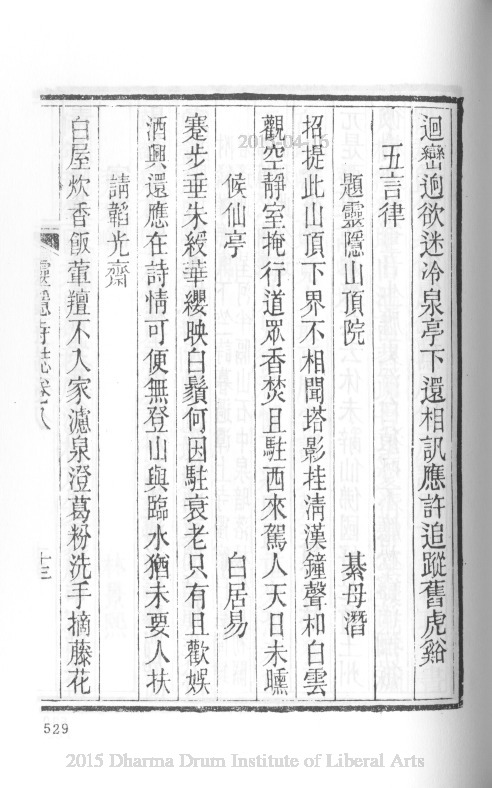 迴巒逈欲迷冷泉亭下還相訊應許追蹤舊虎谿
五言律
題靈隱山頂院 綦母潛
招提此山頂下界不相聞塔影挂清漢鐘聲和白雲
觀空靜室掩行道眾香焚且駐西來駕人天日未曛
候仙亭 白居易
蹇步垂朱綬華纓映白鬚何因駐衰老只有且歡娛
酒興還應在詩情可便無登山與臨水猶未要人扶
請韜光齋
白屋炊香飯葷羶不入家濾泉澄葛粉洗手摘藤花
靈隱寺誌卷八 十三
529
2015 Dharma Drum Institute of Liberal Arts